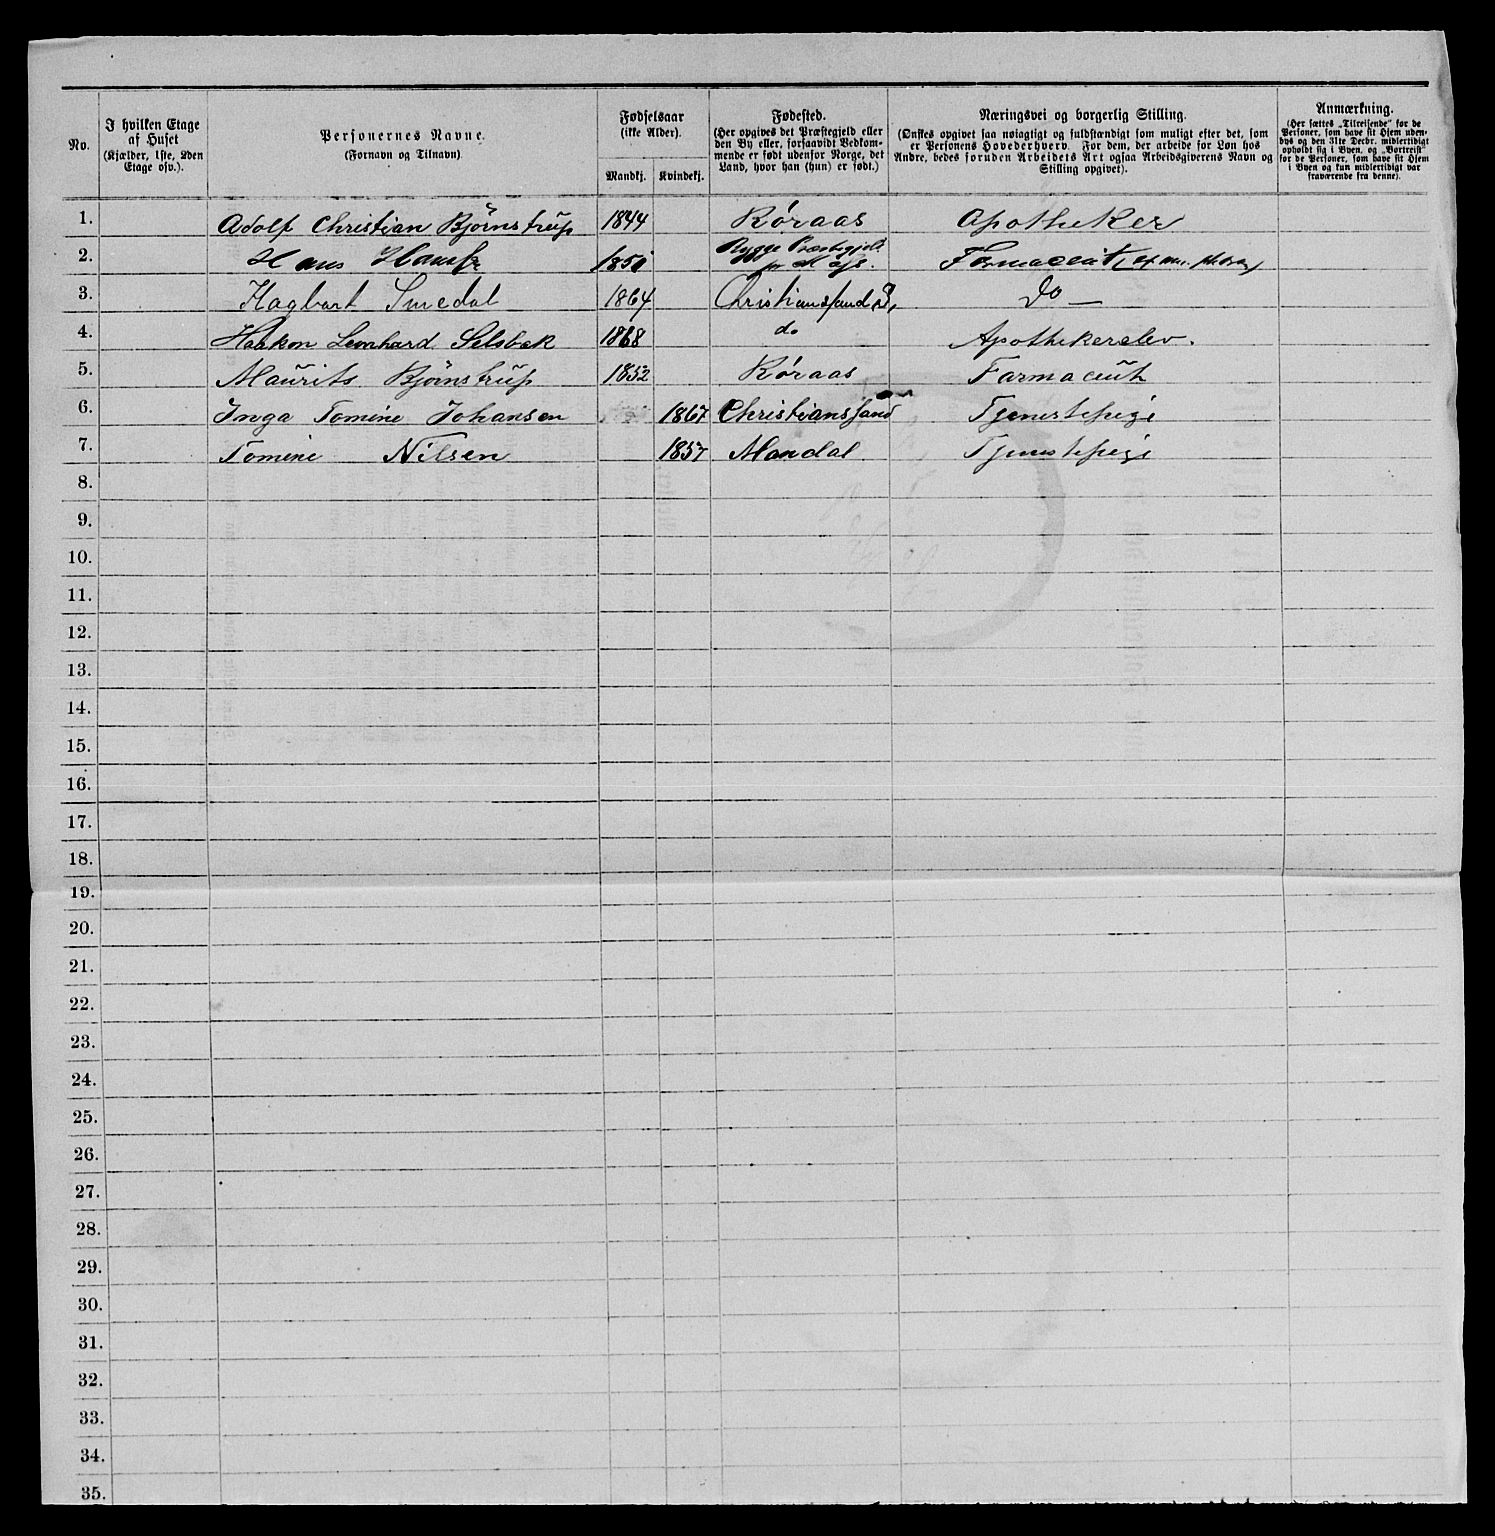 No.
I hvilken Etage
af Huset
(Kjælder, 1ste, 2den
Etage osv.).
Personernes Navne.
(Fornavn og Tilnavn)
Fødselsaar
(ikke Alder).
Mandkj. Kvindekj.
Fødested.
(Her opgives det Præstegjeld eller
den By eller, forsaavidt Vedkom-
mende er født udenfor Norge, det
Land, hvor han (hun) er født.)
Næringsvei og borgerlig Stilling.
(Ønskes opgivet saa nøiagtigt og fuldstændigt som muligt efter det, som
er Personens Hovederhverv. For dem, der arbeide for Løn hos
Andre, bedes foruden Arbeidets Art ogsaa Arbeidsgiverens Navn og
Stilling opgivet).
Anmærkning.
(Her sættes „Tilreisende“ for de
Personer, som have sit Hjem uden-
bys og den 31te Decbr. midlertidigt
opholdt sig i Byen, og „Bortreist“
for de Personer, som have sit Hjem
i Byen og kun midlertidigt var
fraværende fra denne).
1. Adolf Christian Bjørnstrup 1844 Røraas Apotheker
2. Hans 1851 Rygge Præstegjeld Farmaceut
3. Hagbart Smedal 1864 Christianssand do
4. Haakon Leonhard Selsbek 1868 do Apothekerelev.
5. Maurits Bjørnstrup 1852 Røraas Farmaceut
6. Inga Tomine Johansen 1867 Christianssand Tjenestepige
7. Tomine Nilsen 1857 Mandal Tjenestepige
8.
9.
10.
11.
12.
13.
14.
15.
16.
17.
18.
19.
20.
21.
22.
23.
24.
25.
26.
27.
28.
29.
30.
31.
32.
33.
34.
35.